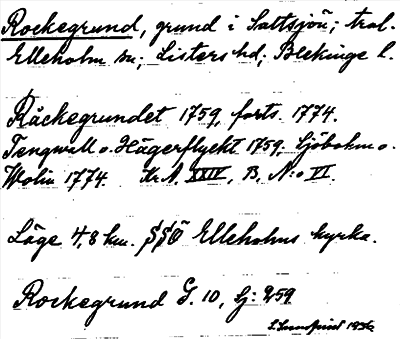 Rockegrund, grund i Saltsjön; trol.
Elleholm sn; Listers hd; Blekinge l.
Råckegrundet 1759, forts. 1774.
Tengwall o. Hägerflyckt 1759; Sjöbohm o.
Wolin 1774. Kr.A. XXIV, B, N:o VI.
Läge 4,8 km. SSÖ Elleholms kyrka.
Rockegrund G. 10, Sj: 259